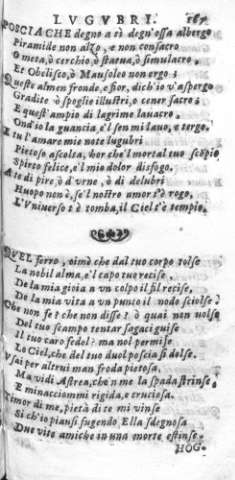 LVGVBRI. 167
POSCIA CHE degno a tè degn'ossa albergo
Piramide non alzo, e non consacro
O meta, ò cerchio, ò statua, ò simulacro,
Et Obelisco, ò Mausoleo non ergo:
Queste almen fronde, e fior, dich'io v'aspergo
Gradite ò spoglie illustri, o cener sacro;
E quest'ampio di lagrime lauacro,
Ond'io la guancia, e'l sen mi lauo, e tergo.
E tu l'amare mie note lugubri
Pietoso ascolta, hor che'l mortal tuo scopio
Spirto felice, e'l mio dolor disfogo,
A te di pire, ò d'vrne, ò di delubri
Huopo non è, se'l nostro amor t'è rogo,
L'Vniuerso t'è tomba, il Ciel t'è tempio.
QVEL ferro, oimè che dal tuo corpo tolse
La nobil alma, e'l capo tuo recise,
De la mia gioia a vn colpo il fil recise,
De la mia vita a vn punto il nodo sciolse
Che non fe? che non disse? ò quai non volse
Del tuo scampo tentar sagaci guise
Il tuo caro fedel? ma nol permise
Lo Ciel, che del tuo duol poscia si dolse.
Vsai per altrui man froda pietosa,
Ma vidi Astrea, che'n me la spada strinse,
E minacciommi rigida, e cruciosa.
Timor di me, pietà di te mi vinse
Si ch'io piansi fugendo, Ella sdegnosa
Due vite amiche in una morte estinse.
HOG-